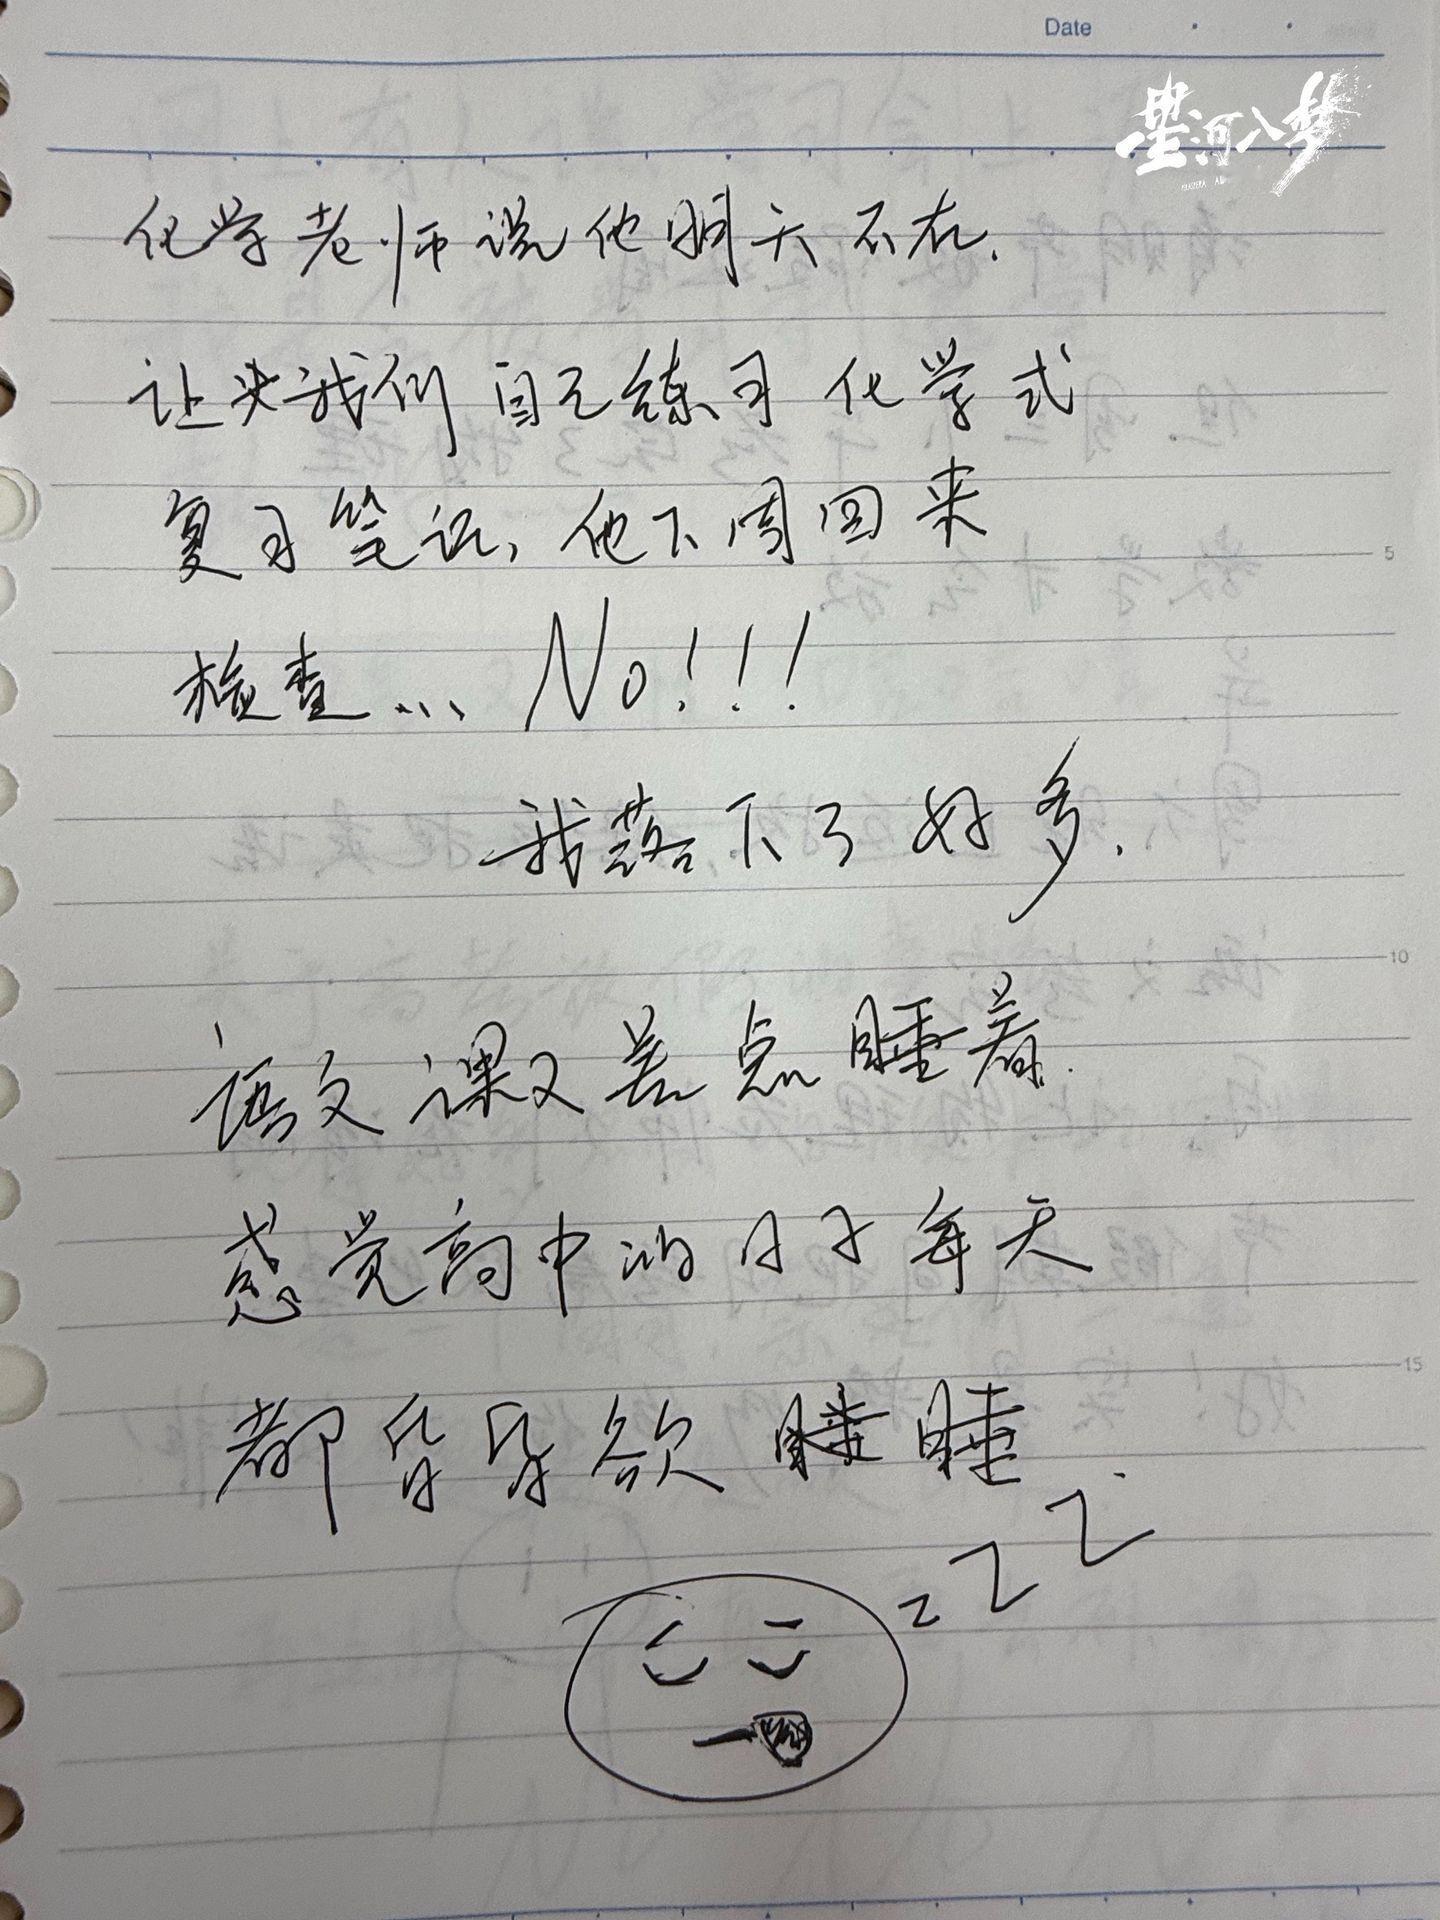 Date
星河入梦
化学老师说他明天不在.
让我们自己练习化学式
复习笔记,他下周回来
检查... No!!!
我落下了好多.
语文课又差点睡着.
感觉高中的日子每天
都昏昏欲睡睡.
zzZ
5
10
15